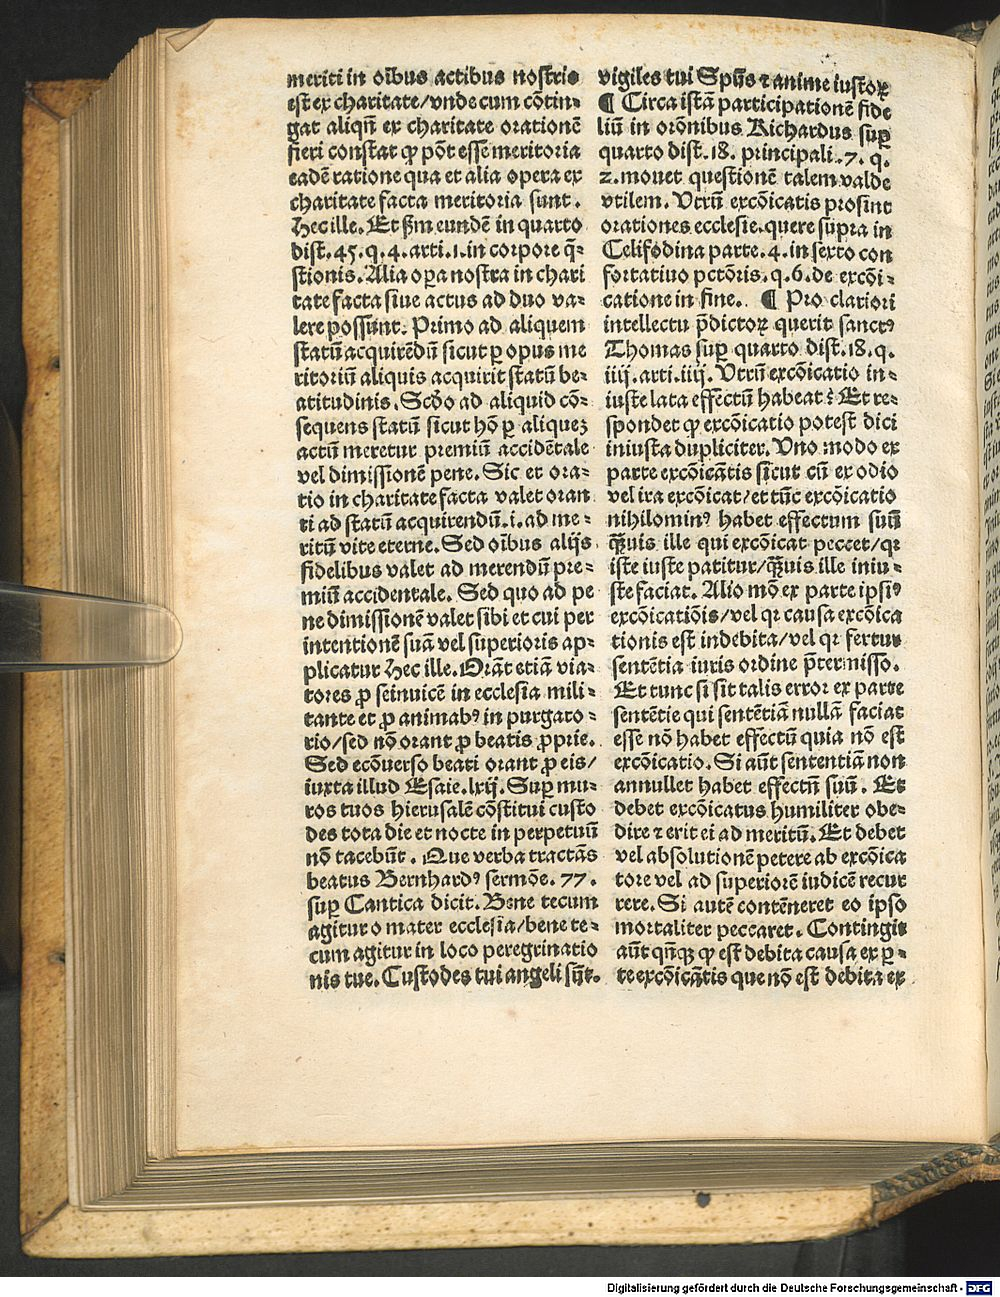 meriti in oībus actibus nostris
est ex charitate/vnde cum cōtin-
gat aliqñ ex charitate orationē
fieri constat ꝙ pōt esse meritoria
eadē ratione qua et alia opera ex
charitate facta meritoria sunt.
Hec ille. Et ẜm eundē in quarto
dist. 45. q. 4. arti. 1. in corpore q̄-
stionis. Alia oꝑa nostra in chari
tate facta siue actus ad duo va-
lere possunt. Primo ad aliquem
statū acquirēdū sicut ꝑ opus me
ritoriū aliquis acquirit statū be-
atitudinis. Scḋo ad aliquid cō-
sequens statū sicut hō ꝑ aliquez
actū meretur premiū accidētale
vel dimissionē pene. Sic et ora-
tio in charitate facta valet oran
ti ad statū acquirendū .i. ad me-
ritū vite eterne. Sed oībus alijs
fidelibus valet ad merendū pre-
miū accidentale. Sed quo ad pe
ne dimissionē valet sibi et cui per
intentionē suā vel superioris ap-
plicatur Hec ille. Orāt etiā via-
tores ꝓ seinuicē in ecclesia mili-
tante et ꝓ animabꝰ in purgato-
rio/sed nō orant ꝓ beatis ꝓprie.
Sed ecōuerso beati orant ꝓ eis/
iuxta illud Esaie. lxij. Suꝑ mu-
ros tuos Hierusalē cōstitui custo
des tota die et nocte in perpetuū
nō tacebūt. Que verba tractās
beatus Bernhardꝰ sermōe. 77.
suꝑ Cantica dicit. Bene tecum
agitur o mater ecclesia/bene te-
cum agitur in loco peregrinatio
nis tue. Custodes tui angeli sūt.
vigiles tui Spūs ⁊ anime iustoꝝ
¶ Circa istā participationē fide
liū in orōnibus Richardus suꝑ
quarto dist. 18. principali. 7. q.
2. mouet questionē talem valde
vtilem. Vtrū excōicatis prosint
orationes ecclesie. quere supra in
Celifodina parte. 4. in sexto con
fortatiuo pctōris. q. 6. de excōi-
catione in fine. ¶ Pro clariori
intellectu p̄dictoꝝ querit sanctꝰ
Thomas suꝑ quarto dist. 18. q.
iiij. arti. iiij. Vtrū excōicatio in-
iuste lata effectū habeat: Et re-
spondet ꝙ excōicatio potest dici
iniusta dupliciter. Vno modo ex
parte excōicātis sicut cū ex odio
vel ira excōicat/et tūc excōicatio
nihilominꝰ habet effectum suū
quāuis ille qui excōicat peccet/qꝛ
iste iuste patitur/quāuis ille iniu-
ste faciat. Alio mō ex parte ipsiꝰ
excōicatiōis/vel qꝛ causa excōica
tionis est indebita/vel qꝛ fertur
sentētia iuris ordine p̄termisso.
Et tunc si sit talis error ex parte
sentētie qui sentētiā nullā faciat
esse nō habet effectū quia nō est
excōicatio. Si aūt sententiā non
annullet habet effectū suū. Et
debet excōicatus humiliter obe-
dire ⁊ erit ei ad meritū. Et debet
vel absolutionē petere ab excōica
tore vel ad superiorē iudicē recur
rere. Si autē contēneret eo ipso
mortaliter peccaret. Contingit
aūt qñqꝫ ꝙ est debita causa ex ꝑ-
te excōicātis que nō est debita ex
Digitalisierung gefördert durch die Deutsche Forschungsgemeinschaft - DFG